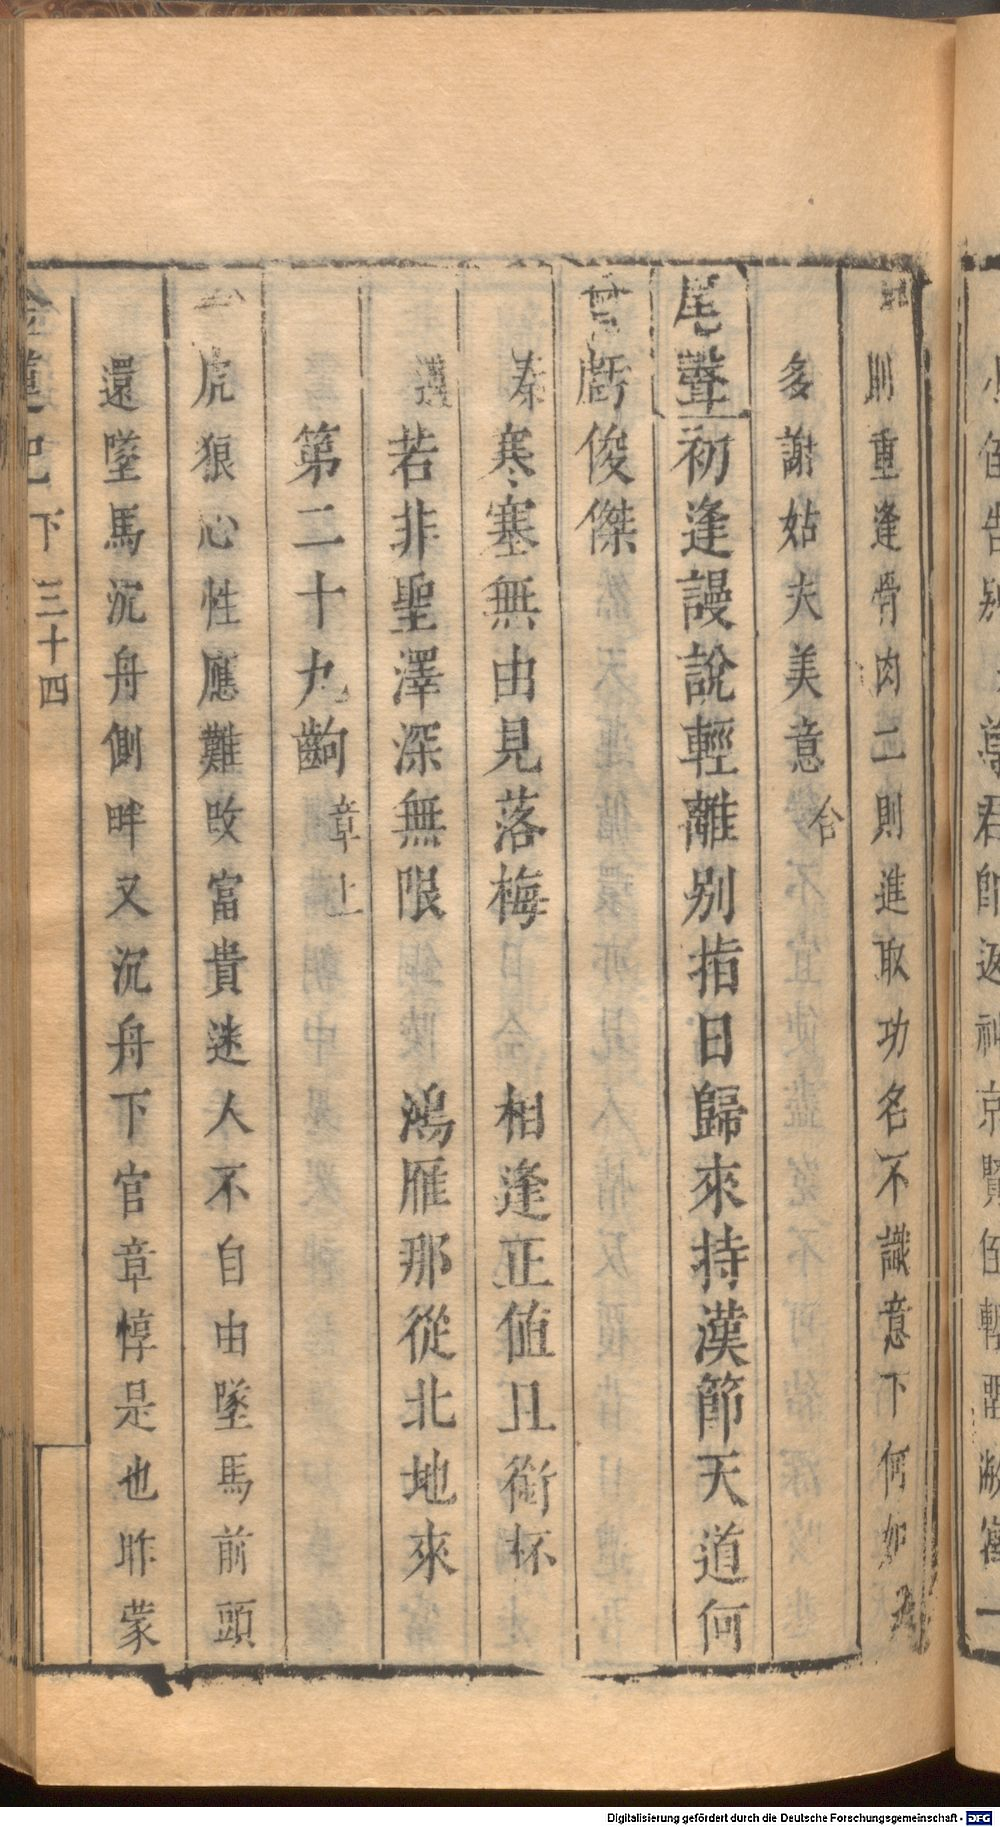 則重逢骨肉二則進取功名不識意下何如
多謝姑夫美意合
尾聲初逢謾說輕離別指日歸來持漢節天道何
曾虧俊傑
秦寒塞無由見落梅 相逢正值且銜杯
還若非聖澤深無限 鴻雁那從北地來
第二十九齣 章上
虎狼心性應難改富貴迷人不自由墜馬前頭
還墜馬沉舟側畔又沉舟下官章惇是也昨蒙
金蓮記下 三十四
Digitalisierung gefördert durch die Deutsche Forschungsgemeinschaft - DFG